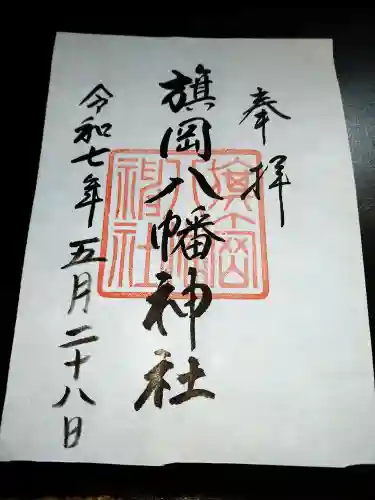 奉拝
旗岡八幡神社
令和七年五月二十八日